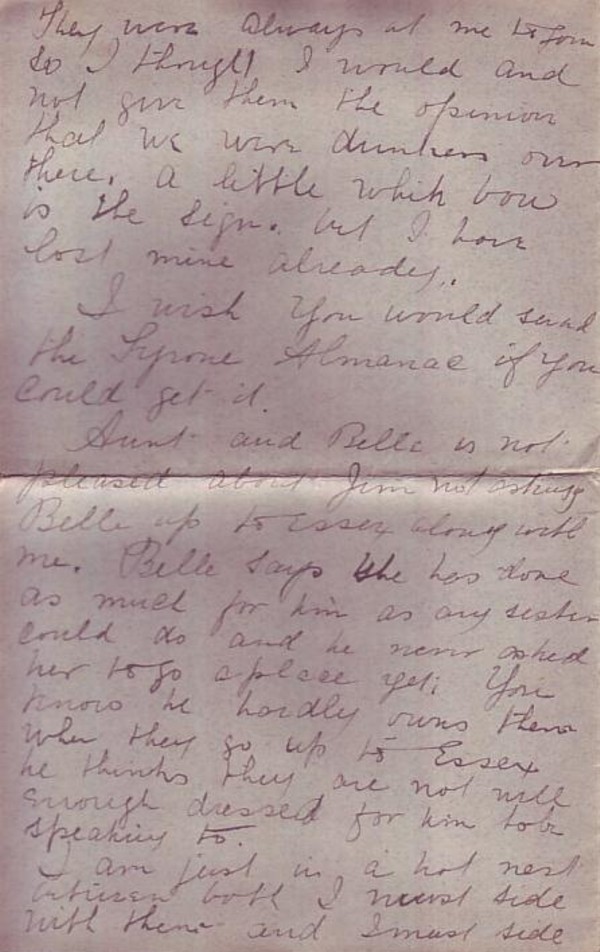 They were always at me to join
so I thought I would and
not give them the opinion
that we were drunkers over
there. A little white bow
is the sign. but I have
lost mine already.
I wish you would send
the Tyrone Almanac if you
could get it.
Aunt and Belle is not
pleased about Jim not asking
Belle up to Essex along with
me. Belle says she has done
as much for him as any sister
could do and he never asked
her to go a place yet; You
know he hardly owns them
when they go up to Essex
he thinks they are not well
enough dressed for him to be
speaking to.
I am just in a hot nest
between both I must side
with them and I must side